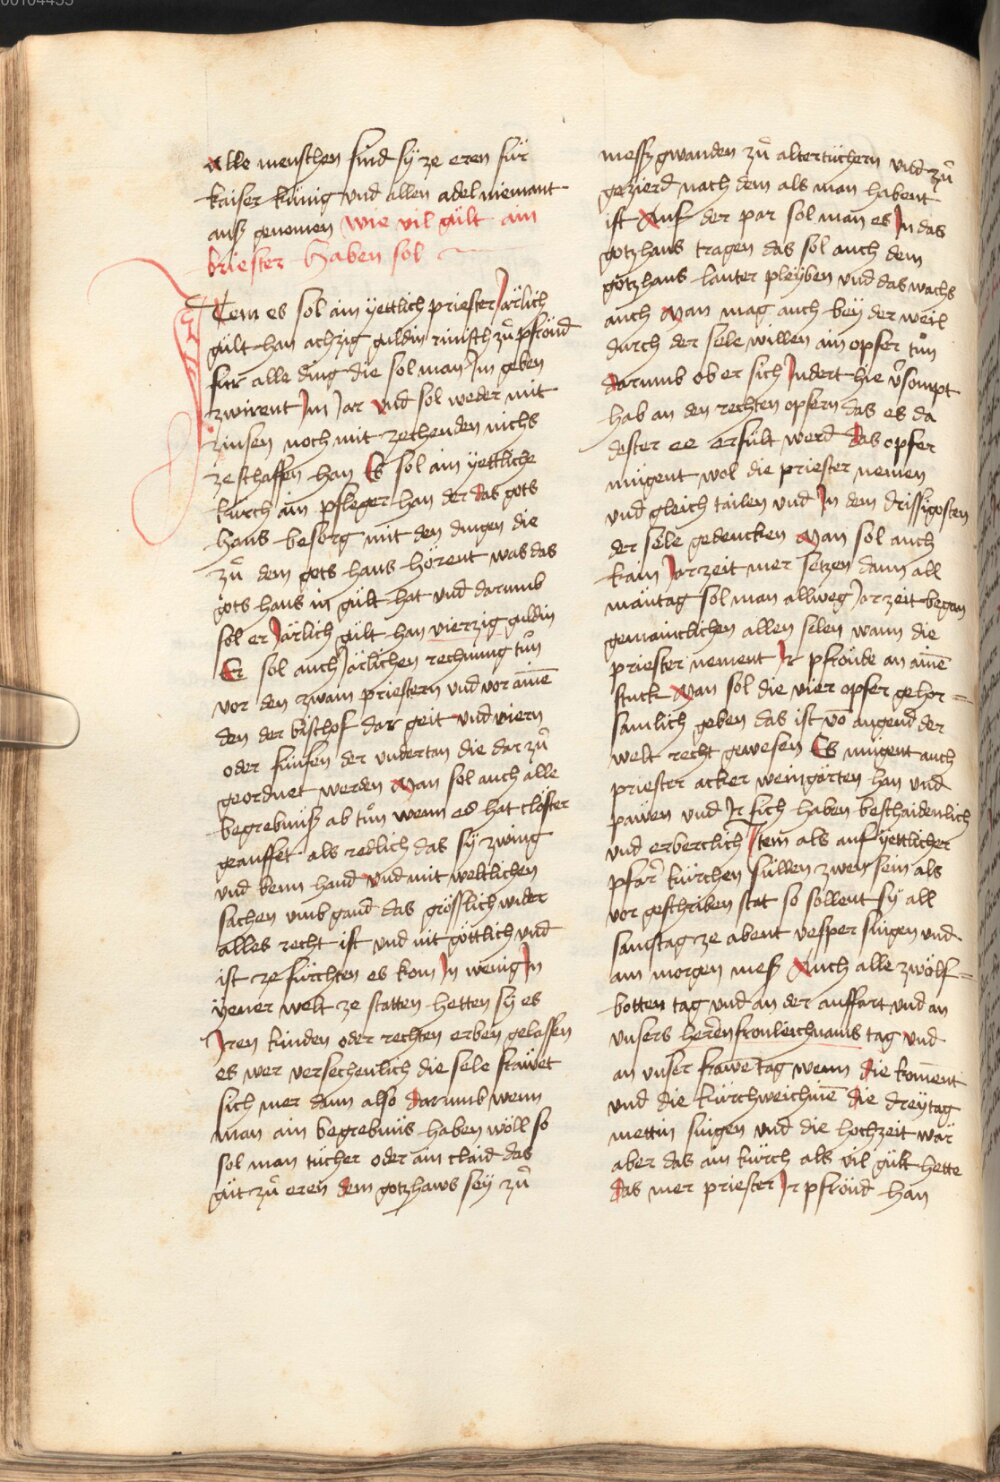 Alle menschen sind sÿ ze eren für
kaiser künig vnd allen adel niemant
auß genomen wie vil gült ain
briester haben sol
Item es sol ain yettlich priester Järlich
gült han achzig guldin rinisch zů pfrönd
für alle ding die sol man Im geben
zwirent Im Jar vnd sol weder mit
zinsen noch mit zechenden nichs
ze schaffen han Es sol ain yettliche
kirch ain pfleger han der das gots
haus besorg mit den dingen die
zů dem gots haus hörent was das
gots haus in gült hat vnd darumb
sol er Järlich gült han vierzig guldin
Er sol auch Järlichen rechnung tůn
vor den zwain priestern vnd vor aine̅
den der bischof dar geit vnd viern
oder fünfen der vndertan die dar zů
geordnet werden Man sol auch alle
begrebnuß ab tůn wenn es hat clöster
geauffet als redlich das sÿ zwing
vnd benn hand vnd mit weltlichen
sachen vmb gand das grösslich wider
alles recht ist vnd nit göttlich vnd
ist ze fürchten es kom In wenig In
yener welt ze statten hetten sÿ es
Iren kinden oder rechten erben gelassen
es wer versechenlich die sele fräwet
sich mer dann also darumb wenn
man ain begrebnüs haben wöll so
sol man tücher oder ain claid das
gůt zů eren dem gotzhaws sey zů
messgwanden zů altertüchern vnd zů
gezierd nach dem als man habent
ist Auf der par sol man es In das
gotzhaus tragen das sol auch dem
gotzhaus lauter pleyben vnd das wachs
auch Man mag auch bey der weil
durch der sele willen ain opfer tůn
darumb ob er sich Indert hie v̾sompt
hab an den rechten opfern das es da
dester ee erfült werd das opfer
mügent wol die priester nemen
vnd gleich tailen vnd In dem drissigosten
der sele gedencken Man sol auch
kain Jarzeit mer setzen dann all
mäntag sol man allweg Jarzeit began
gemainclichen allen selen wann die
priester nement Ir pfrönde an aine̅
stuck Man sol die vier opfer gehor=
samlich geben das ist vo̅ angend der
welt recht gewesen Es mügent auch
priester acker weingarten han vnd
pawen vnd Ir sich haben beschaidenlich
vnd erberclich Item als auf yettlicher
pfarr kirchen süllen zwen sein als
vor geschriben stat so sollent sÿ all
samstag ze abent vesper singen vnd
am morgen meß Auch alle zwölf=
botten tag vnd an der auffart vnd an
vnsers heren fronleichnams tag vnd
an vnser frawe̅ tag wenn die koment
vnd die kirchweichine̅ die dreÿ tag
mettin singen vnd die hochzeit wär
aber das ain kirch als vil gült hette
das mer priester Ir pfrönd han